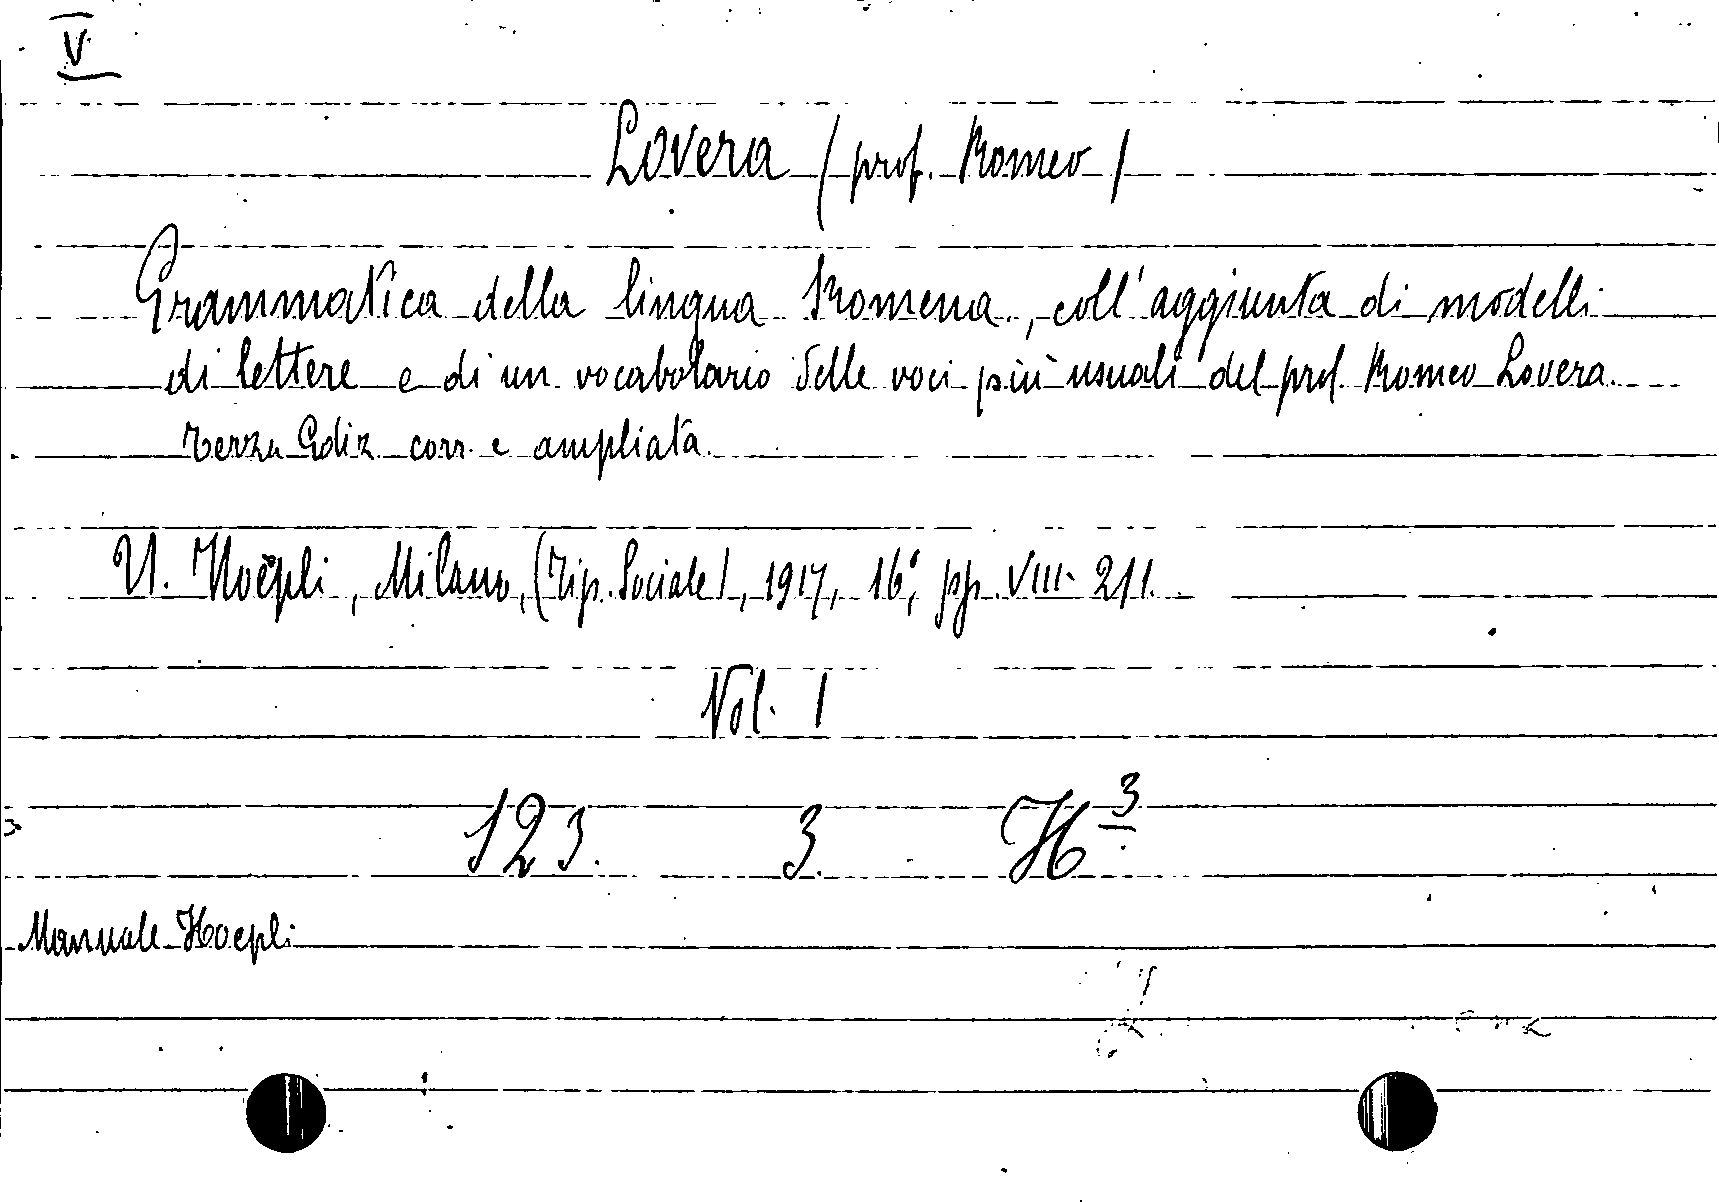 V
Lovera (prof. Romeo)
Grammatica della lingua Romena, coll'aggiunta di modelli
di lettere e di un vocabolario delle voci più usuali del prof. Romeo Lovera.
Terza Ediz. corr. e ampliata.
U. Hoepli, Milano, (Tip. Sociale), 1917, 16°, pp. VIII-211.
Vol. 1
123. 3. H³
Manuale Hoepli